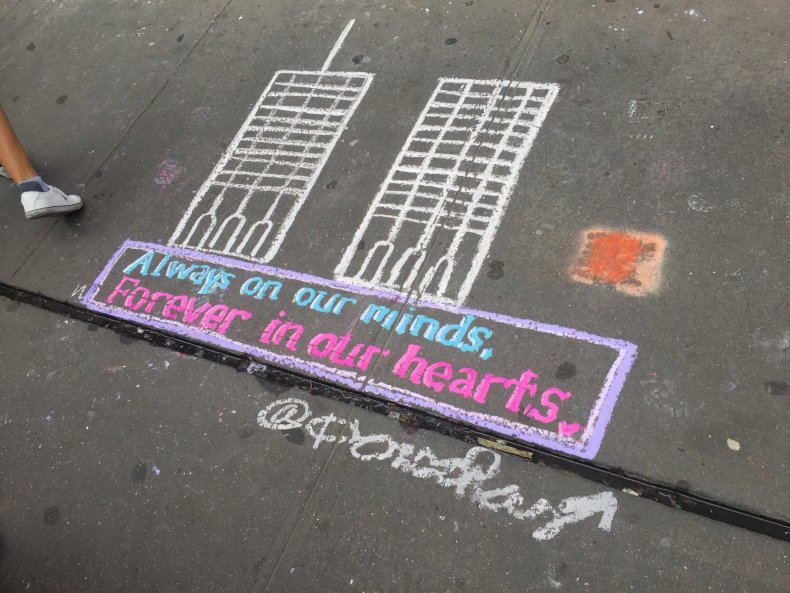 Always on our minds.
Forever in our hearts.